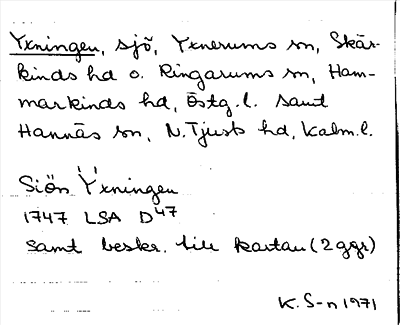 Yxningen, sjö, Yxnerums sn, Skär-
kinds hd o. Ringarums sn, Ham-
markinds hd, Östg.l. samt
Hannäs sn, N.Tjusts hd, Kalm.l.
Siön Yxningen
1747 LSA D47
samt beskr. till kartan (2 ggr)
K. S-n 1971